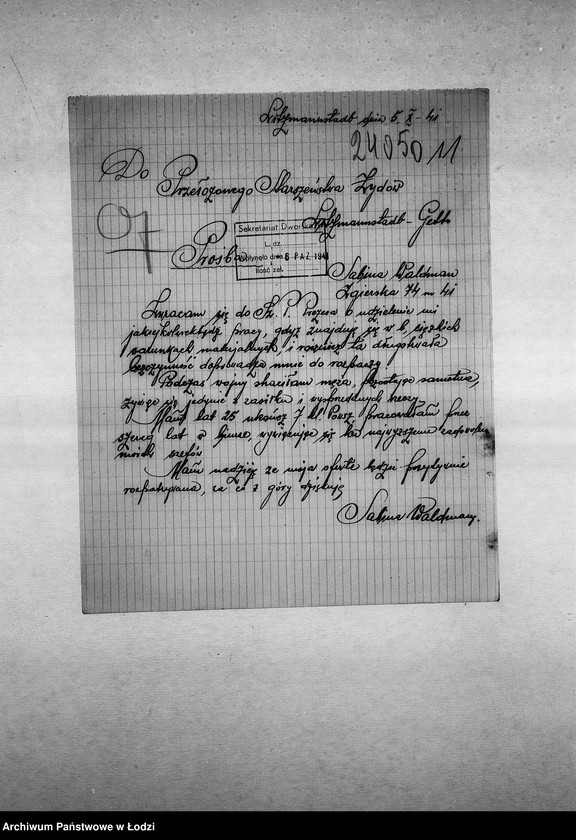 Litzmannstadt dnia 5. X - 41
24050 11
Do
Przełożonego Starszeństwa Żydów
07
Litzmannstadt-Getto
Prośba
Sekretariat
L. dz.
dnia 6 PAŹ. 1941
Ilość zał.
Sabina Waldman
Zgierska 74 m 41
Zwracam się do Sz. P. Prezesa o udzielenie mi
jakiejkolwiekbądź pracy, gdyż znajduję się w b. ciężkich
warunkach materjalnych, i również ta długotrwała
bezczynność doprowadza mnie do rozpaczy.
Podczas wojny straciłam męża, pozostając samotna,
żywię się jedynie z zasiłku i
Mam lat 25 ukończ 7 kl. Powsz. pracowałam przez
szereg lat w biurze, wywiązując się ku najwyższemu
moich szefów
Mam nadzieję że moja oferta będzie przychylnie
rozpatrywana, za co z góry dziękuję
Sabina Waldman.
Archiwum Państwowe w Łodzi